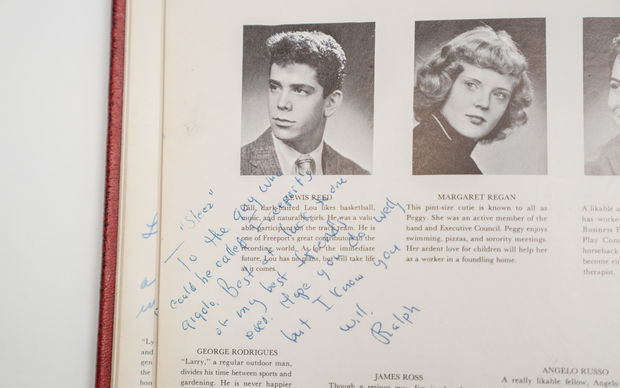 LEWIS REED
Tall, dark-haired Lou likes basketball,
music, and naturally, girls. He was a valu-
able participant on the track team. He is
one of Freeport's great contributors to the
recording world. As for the immediate
future, Lou has no plans, but will take life
as it comes.
MARGARET REGAN
This pint-size cutie is known to all as
Peggy. She was an active member of the
band and Executive Council. Peggy enjoys
swimming, pizzas, and sorority meetings.
Her ardent love for children will help her
as a worker in a foundling home.
A likable a
has worke
Business F
Play Com
horseback
become ei
therapist.
"Sleez"
To the guy who
could be called
gigolo. Best of luck to one
of my best
ever. Hope you do well
but I know you
will.
Ralph
GEORGE RODRIGUES
"Larry," a regular outdoor man,
divides his time between sports and
gardening. He is never happier
JAMES ROSS
ANGELO RUSSO
A really likable fellow, Angelo
"Ly
and
gen
the
hoo